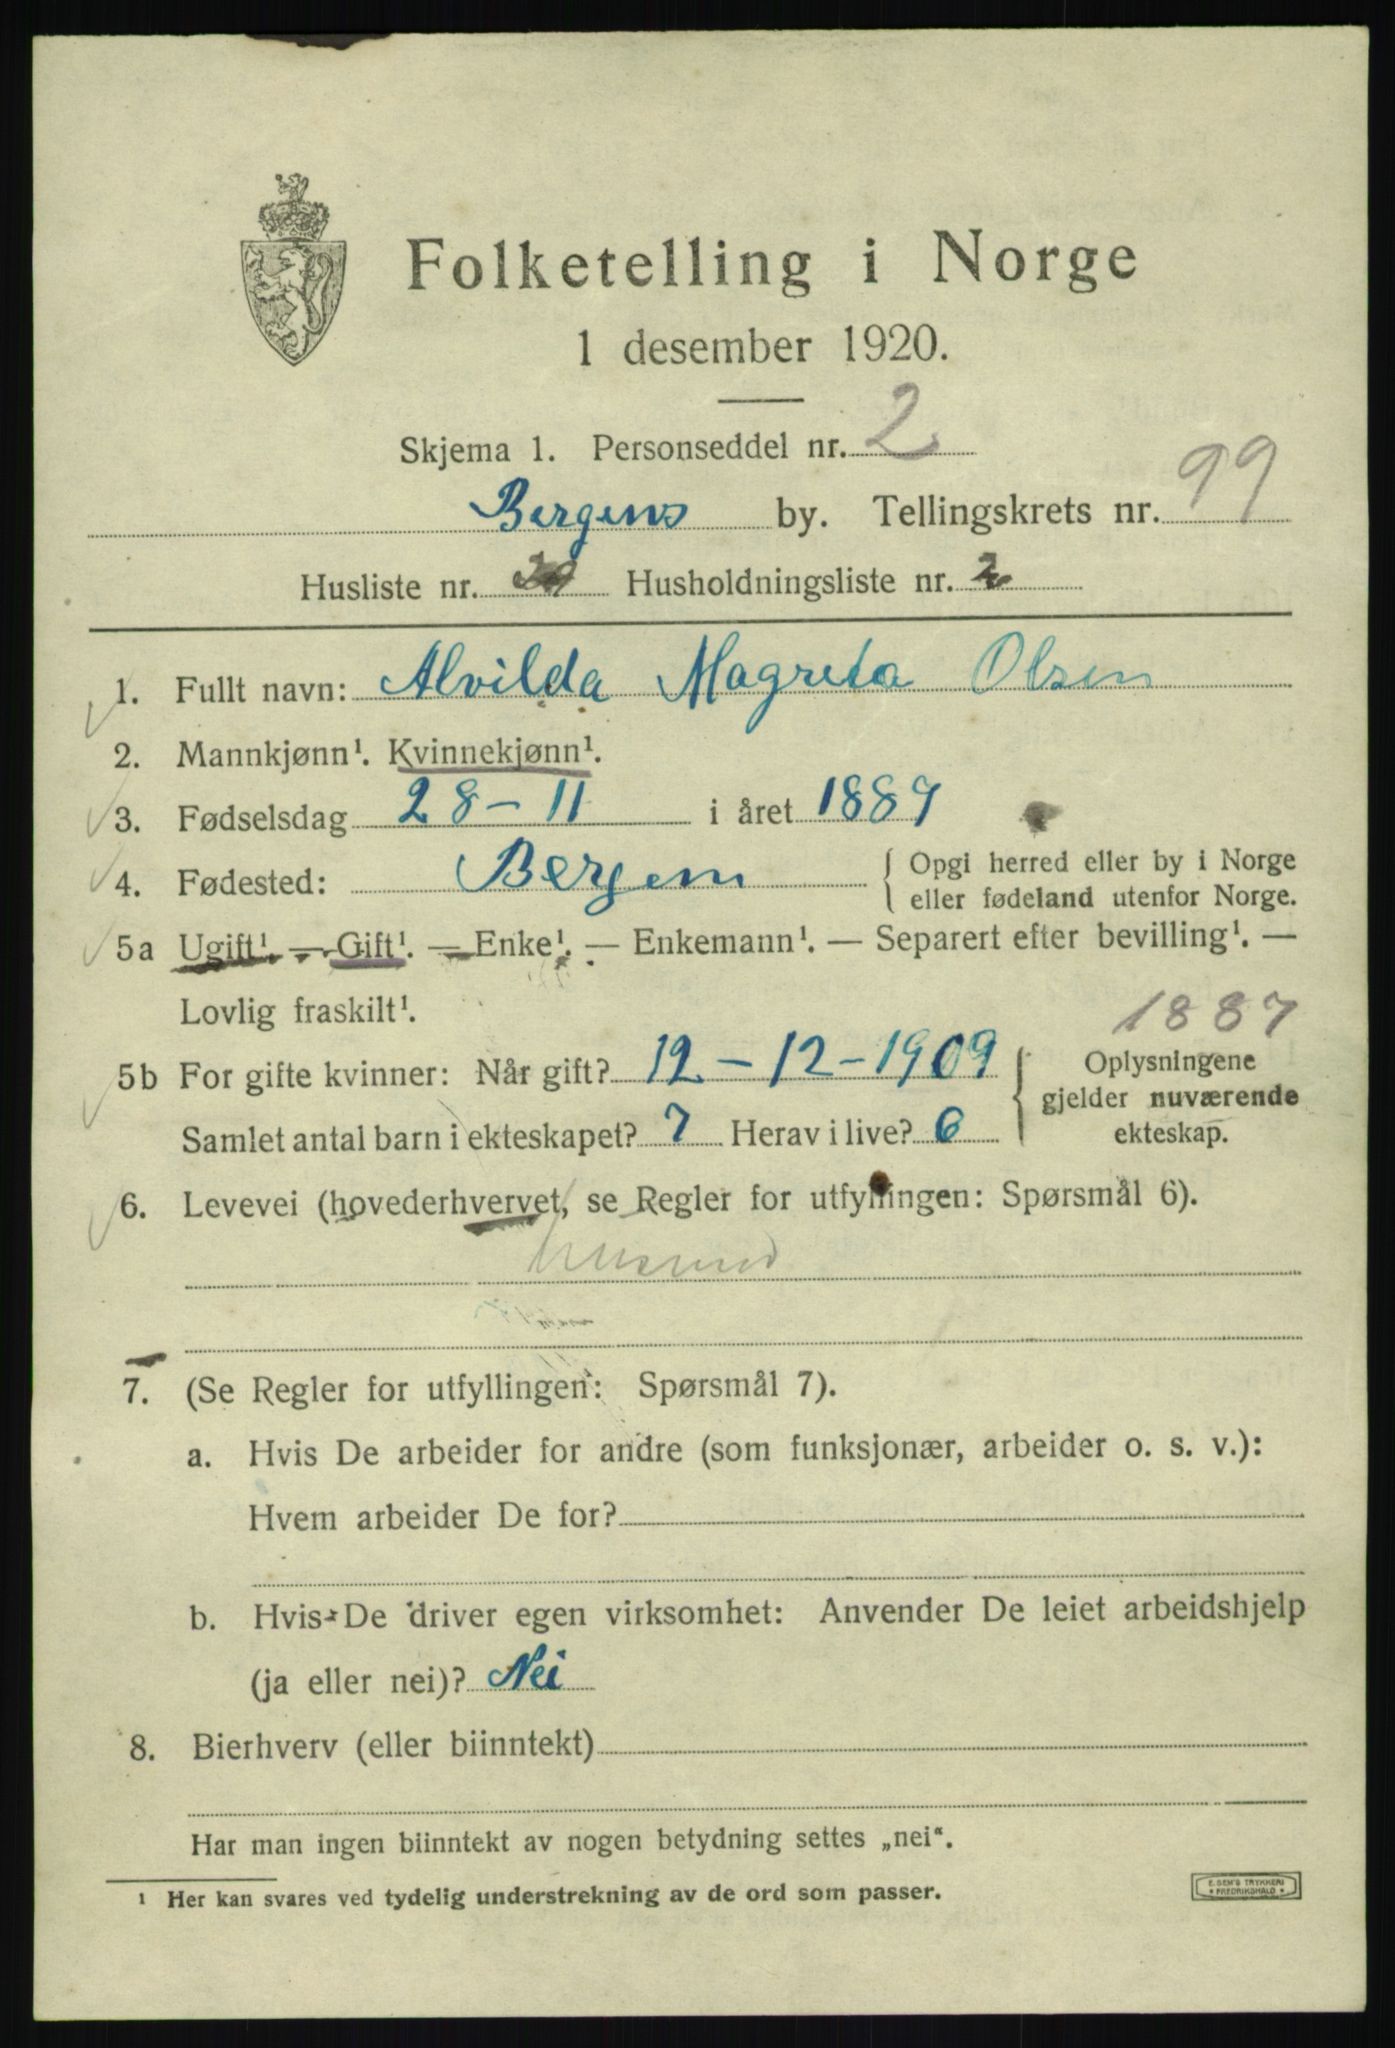 Folketelling i Norge
1 desember 1920.
Skjema 1. Personseddel nr. 2
Bergens by. Tellingskrets nr. 99
Husliste nr. Husholdningsliste nr. 2
1. Fullt navn: Alvilda Magreta Olsen
2. Mannkjønn¹. Kvinnekjønn¹.
3. Fødselsdag 28-11 i året 1887
4. Fødested: Bergen { Opgi herred eller by i Norge
eller fødeland utenfor Norge.
5a Ugift¹. — Gift¹. — Enke¹. — Enkemann¹. — Separert efter bevilling¹. —
Lovlig fraskilt¹.
1887
5b For gifte kvinner: Når gift? 12-12-1909 { Oplysningene
gjelder nuværende
Samlet antal barn i ekteskapet? 7 Herav i live? 6 ekteskap.
6. Levevei (hovederhvervet, se Regler for utfyllingen: Spørsmål 6).
7. (Se Regler for utfyllingen: Spørsmål 7).
a. Hvis De arbeider for andre (som funksjonær, arbeider o. s. v.):
Hvem arbeider De for?
b. Hvis De driver egen virksomhet: Anvender De leiet arbeidshjelp
(ja eller nei)? Nei
8. Bierhverv (eller biinntekt)
Har man ingen biinntekt av nogen betydning settes „nei“.
¹ Her kan svares ved tydelig understrekning av de ord som passer.
E. SEM'S TRYKKERI
FREDRIKSHALD